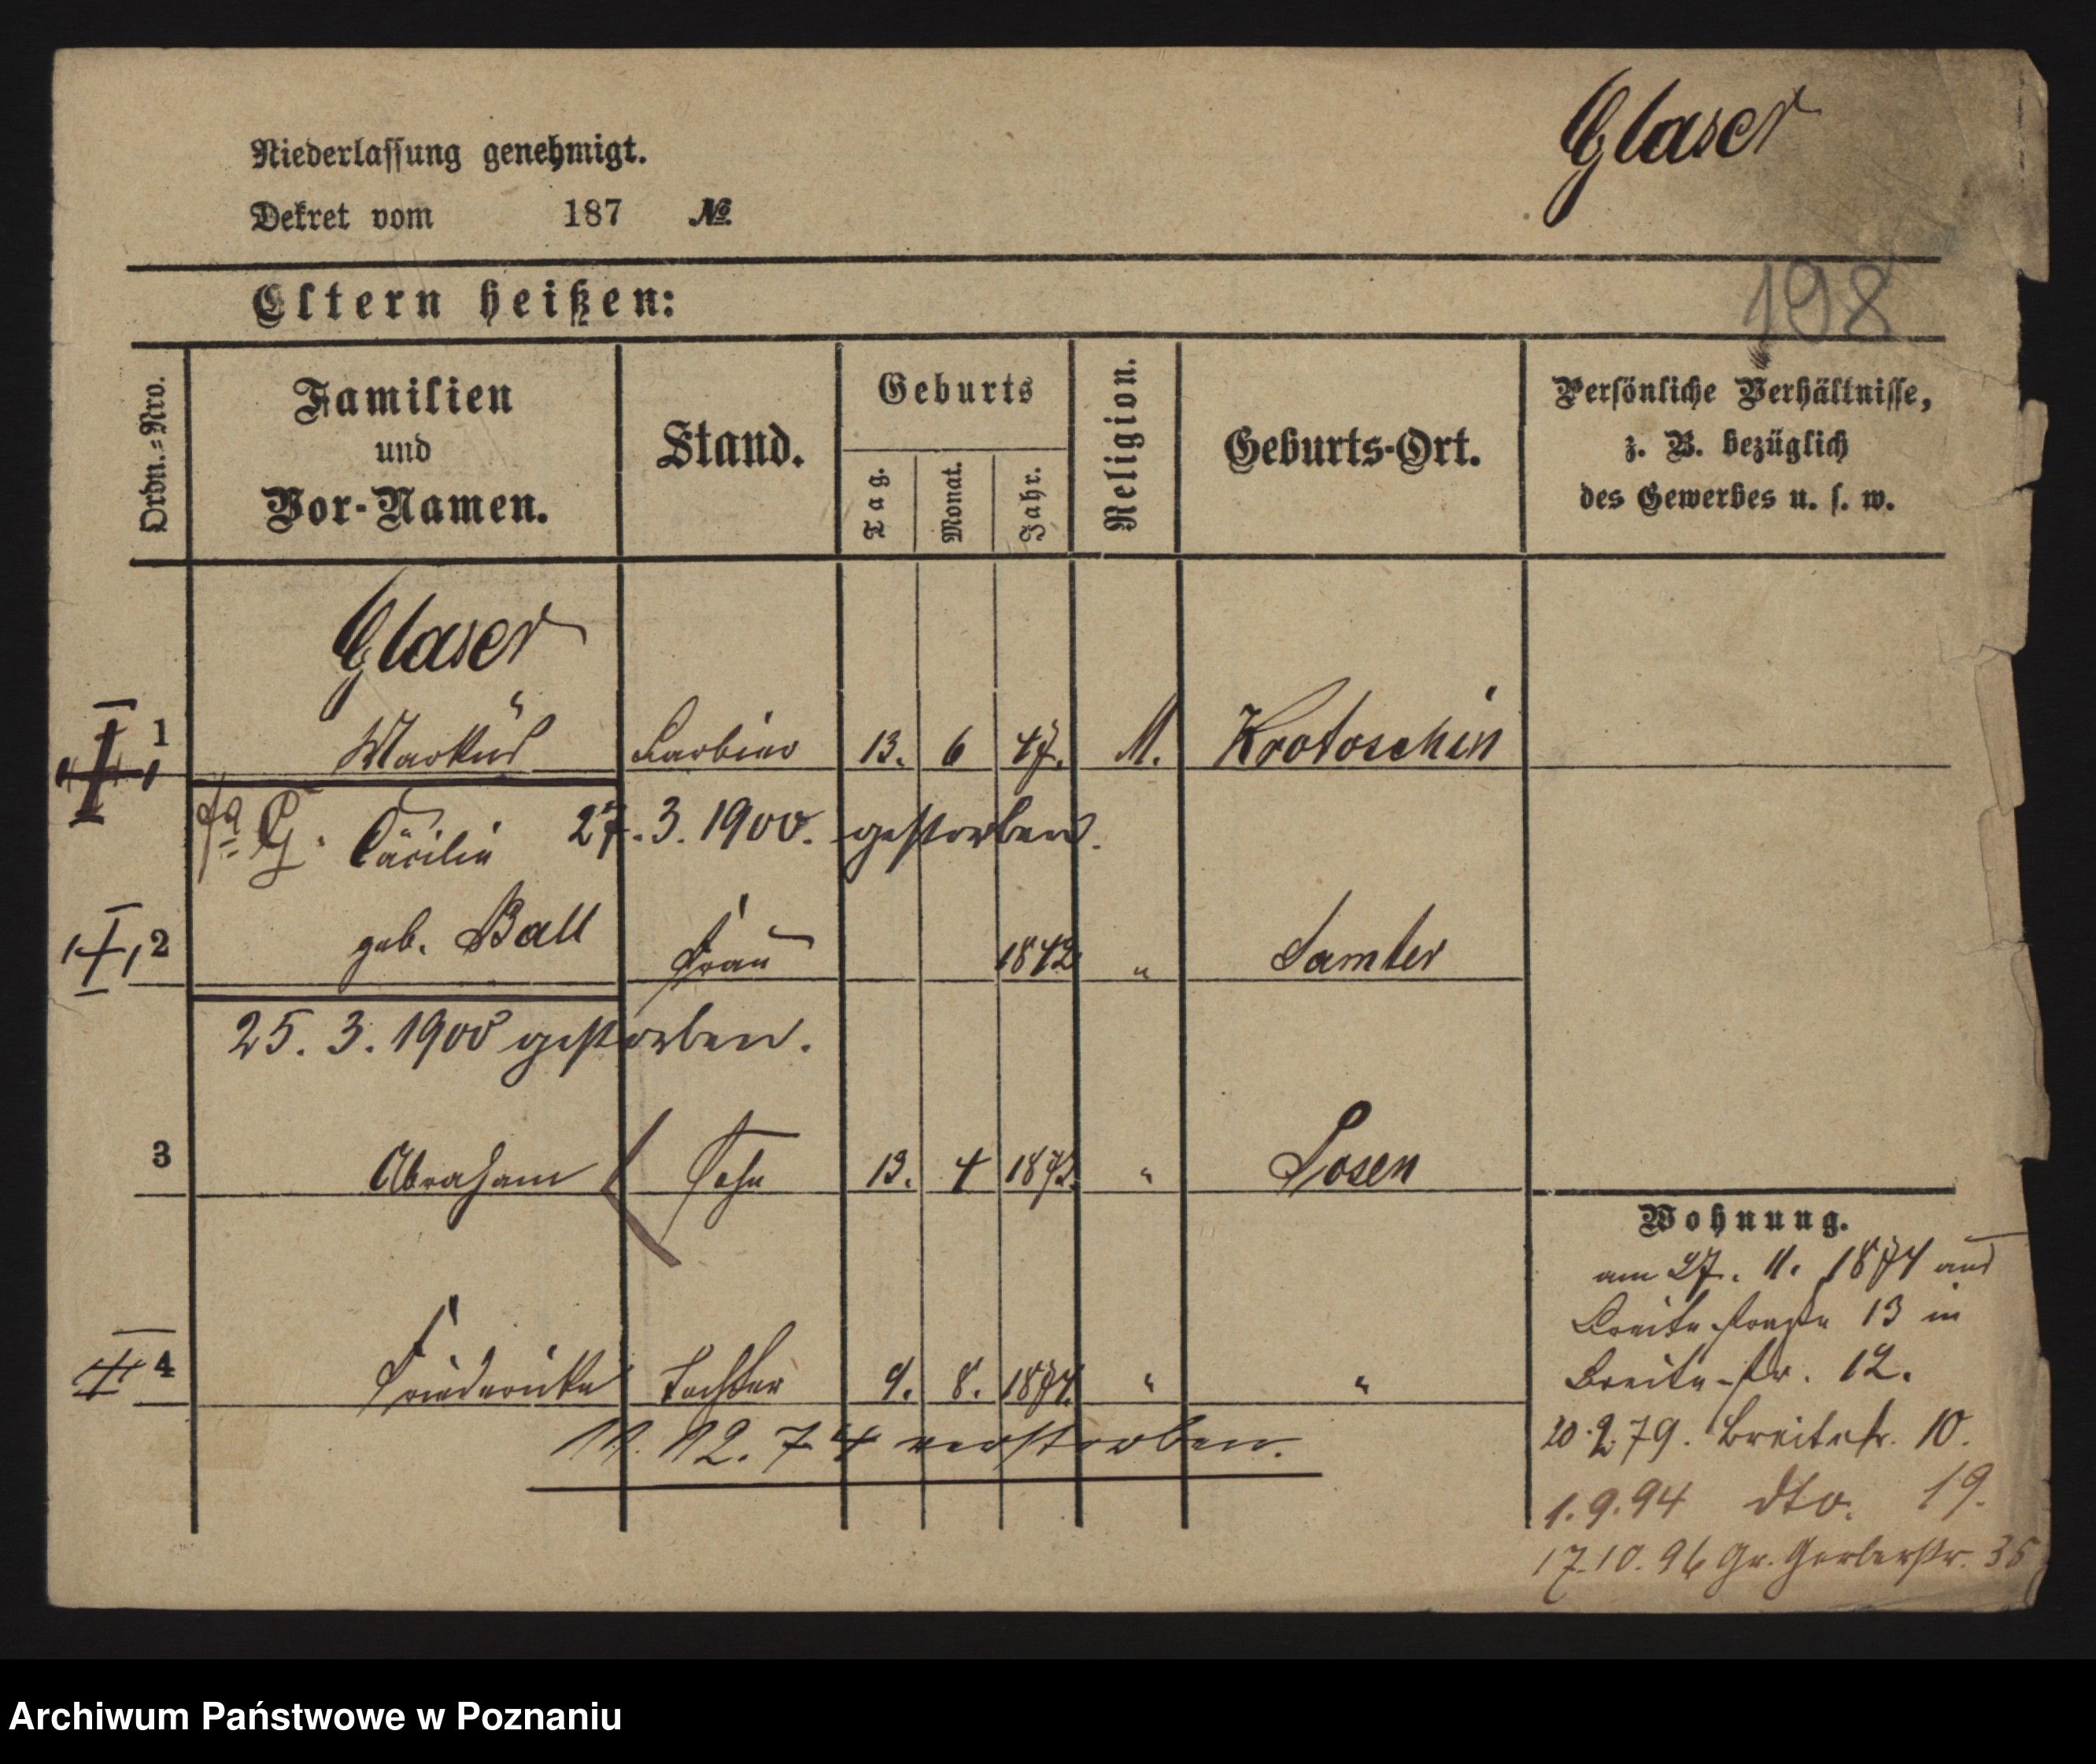 Glaser
Niederlassung genehmigt.
Dekret vom 187 №
Eltern heißen:
198
Ordn.=Nro.
Familien
und
Vor-Namen.
Stand.
Geburts
Tag.
Monat.
Jahr.
Religion.
Geburts-Ort.
Persönliche Verhältnisse,
z. B. bezüglich
des Gewerbes u. s. w.
Glaser
1 Markus Barbier 13. 6 47. M. Krotoschin
G. Cäcilie 27. 3. 1900. gestorben.
2 geb. Ball Frau 1842 " Samter
25. 3. 1900 gestorben.
3 Abraham Sohn 13. 4 1872. " Posen
4 Friederike Tochter 9. 8. 1874. " "
11. 12. 74 verstorben.
Wohnung.
am 27. 11. 1874 aus
Breitestraße 13 in
Breite-str. 12.
20.2.79. Breitestr. 10.
1.9.94 dto. 19.
17.10.96 Gr. Gerberstr. 35
Archiwum Państwowe w Poznaniu